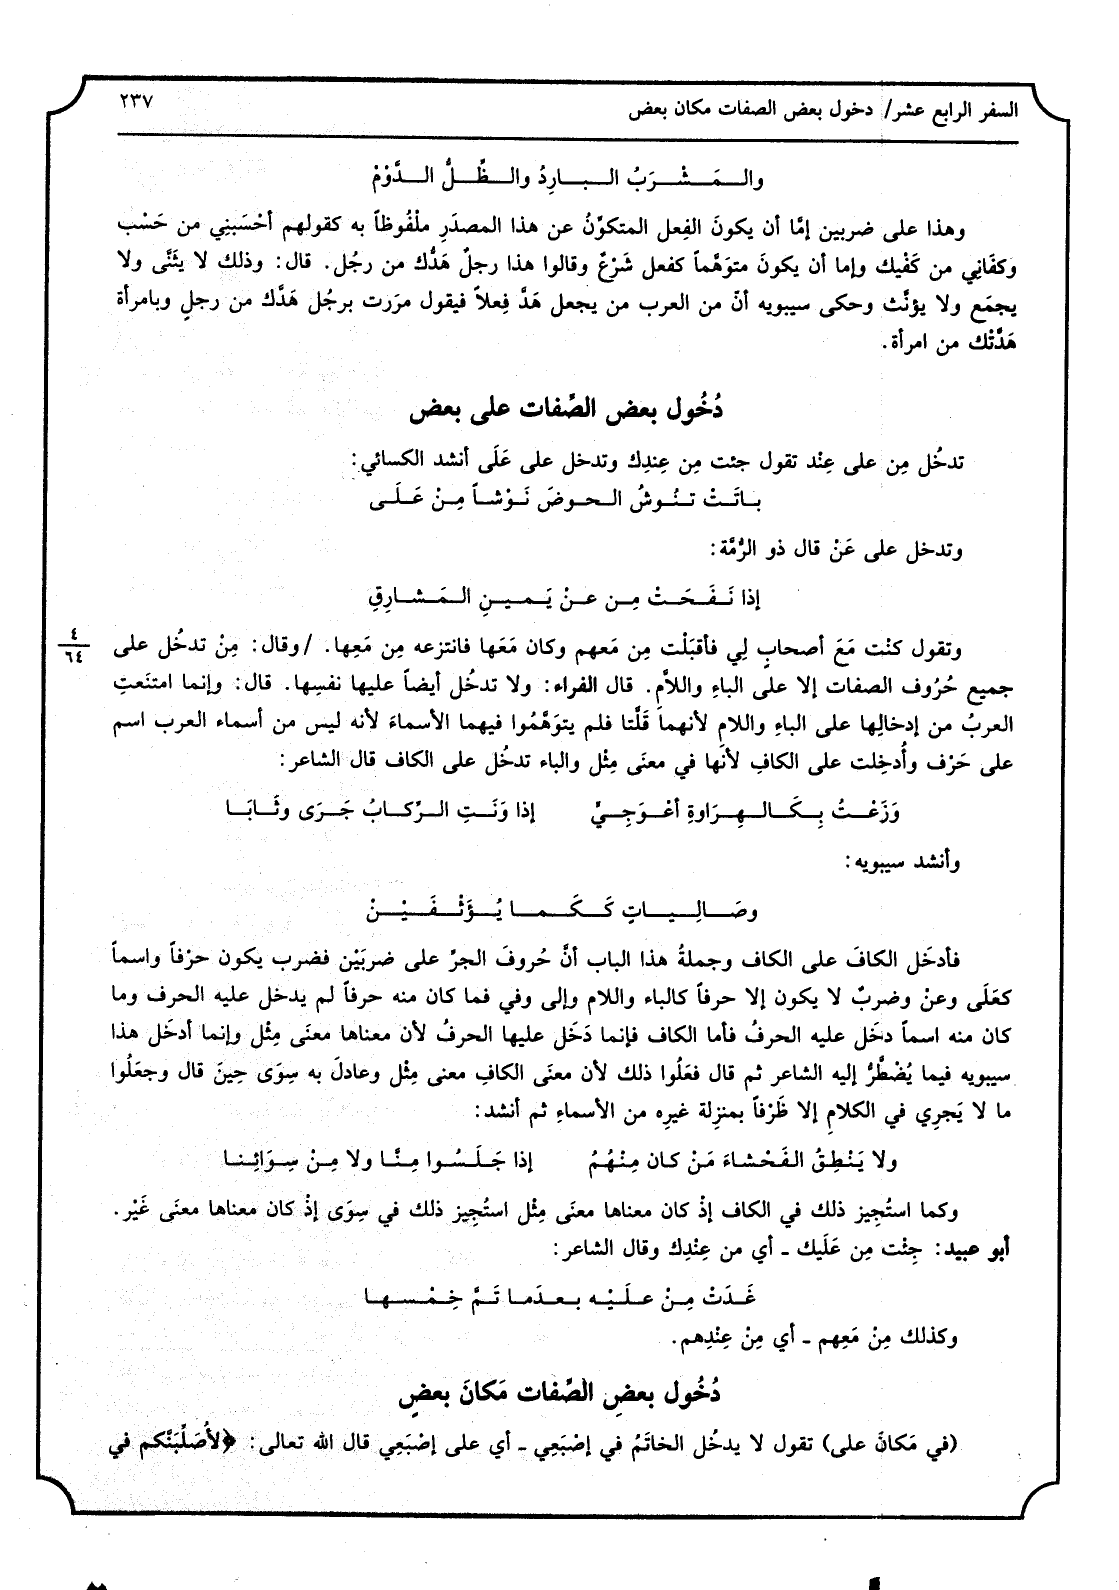 السفر الرابع عشر/ دخول بعض الصفات مكان بعض ٢٣٧
والـمَـشْـرَبُ الـبـارِدُ والـظِّـلُّ الـدَّوْمْ
وهذا على ضربين إمَّا أن يكونَ الفِعل المتكوِّنُ عن هذا المصدَرِ ملْفُوظاً به كقولهم أحْسَبنِي من حَسْب
وكفَانِي من كَفْيِك وإما أن يكونَ متوَهَّماً كفعل شَرْعٌ وقالوا هذا رجلٌ هَدُّك من رجُل. قال: وذلك لا يثَنَّى ولا
يجمَع ولا يؤنَّث وحكى سيبويه أنّ من العرب من يجعل هَدَّ فِعلاً فيقول مرَرت برجُل هَدَّك من رجلٍ وبامرأة
هَدَّتْك من امرأة.
دُخُول بعض الصِّفات على بعض
تدخُل مِن على عِنْد تقول جئت مِن عِندِك وتدخل على عَلَى أنشد الكسائي:
بـاتَـتْ تـنُـوشُ الـحـوضَ نَـوْشـاً مِـنْ عَـلَـى
وتدخل على عَنْ قال ذو الرُّمَّة:
إذا نَـفَـحَـتْ مِـن عـنْ يَـمـيـنِ الـمَـشـارِقِ
وتقول كنْت مَعَ أصحابٍ لِي فأقبَلْت مِن مَعهم وكان مَعَها فانتزعه مِن مَعِها. /وقال: مِنْ تدخُل على
٤
٦٤
جميع حُرُوف الصفات إلا على الباءِ واللاَّمِ. قال الفراء: ولا تدخُل أيضاً عليها نفسِها. قال: وإنما امتنَعتِ
العربُ من إدخالِها على الباءِ واللامِ لأنهما قَلَّتا فلم يتوَهَّمُوا فيهما الأسماءَ لأنه ليس من أسماء العرب اسم
على حَرْف وأُدخِلت على الكافِ لأنَها في معنَى مِثْل والباء تدخُل على الكاف قال الشاعر:
وَزَعْـتُ بِـكَـالـهِـرَاوةِ أعْـوَجِـيٍّ إذا وَنَـتِ الـرِّكـابُ جَـرَى وثَـابَـا
وأنشد سيبويه:
وصَـالِـيـاتٍ كَـكَـمـا يُـؤَثْـفَـيْـنْ
فأدخَل الكافَ على الكاف وجملةُ هذا الباب أنَّ حُروفَ الجرِّ على ضربَيْن فضرب يكون حرْفاً واسماً
كعَلَى وعنْ وضربٌ لا يكون إلا حرفاً كالباء واللام وإلى وفي فما كان منه حرفاً لم يدخل عليه الحرف وما
كان منه اسماً دخَل عليه الحرفُ فأما الكاف فإنما دَخَل عليها الحرفُ لأن معناها معنَى مِثْل وإنما أدخَل هذا
سيبويه فيما يُضْطَرُّ إليه الشاعر ثم قال فعَلُوا ذلك لأن معنَى الكافِ معنى مِثْل وعادلَ به سِوَى حِينَ قال وجعَلُوا
ما لا يَجرِي في الكلامِ إلا ظَرْفاً بمنزِلة غيرِه من الأسماءِ ثم أنشد:
ولا يَـنْـطِـقُ الـفَـحْـشـاءَ مَـنْ كـان مِـنْـهُـمُ إذا جَـلَـسُـوا مِـنَّـا ولا مِـنْ سِـوَائِـنـا
وكما استُجِيز ذلك في الكاف إذْ كان معناها معنَى مِثْل استُجِيز ذلك في سِوَى إذْ كان معناها معنَى غَيْر.
أبو عبيد: جِئْت مِن عَلَيك ـ أي من عِنْدِك وقال الشاعر:
غَـدَتْ مِـنْ عـلَـيْـه بـعـدَمـا تَـمَّ خِـمْـسـهـا
وكذلك مِنْ مَعِهم ـ أي مِنْ عِنْدِهم.
دُخُول بعضِ الصِّفات مَكانَ بعضٍ
(في مَكانَ على) تقول لا يدخُل الخاتَمُ في إصْبَعِي ـ أي على إصْبَعِي قال الله تعالى: ﴿لأُصَلِّبَنَّكم في